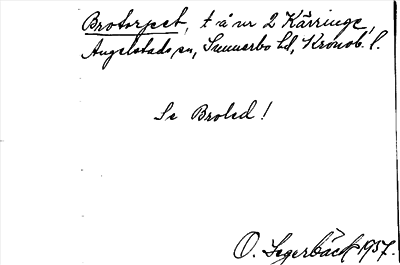 Brotorpet, t å nr 2 Kärringe,
Angelstads sn, Sunnerbo hd, Kronob. l.
Se Broled!
O. Segerbäck 1937.